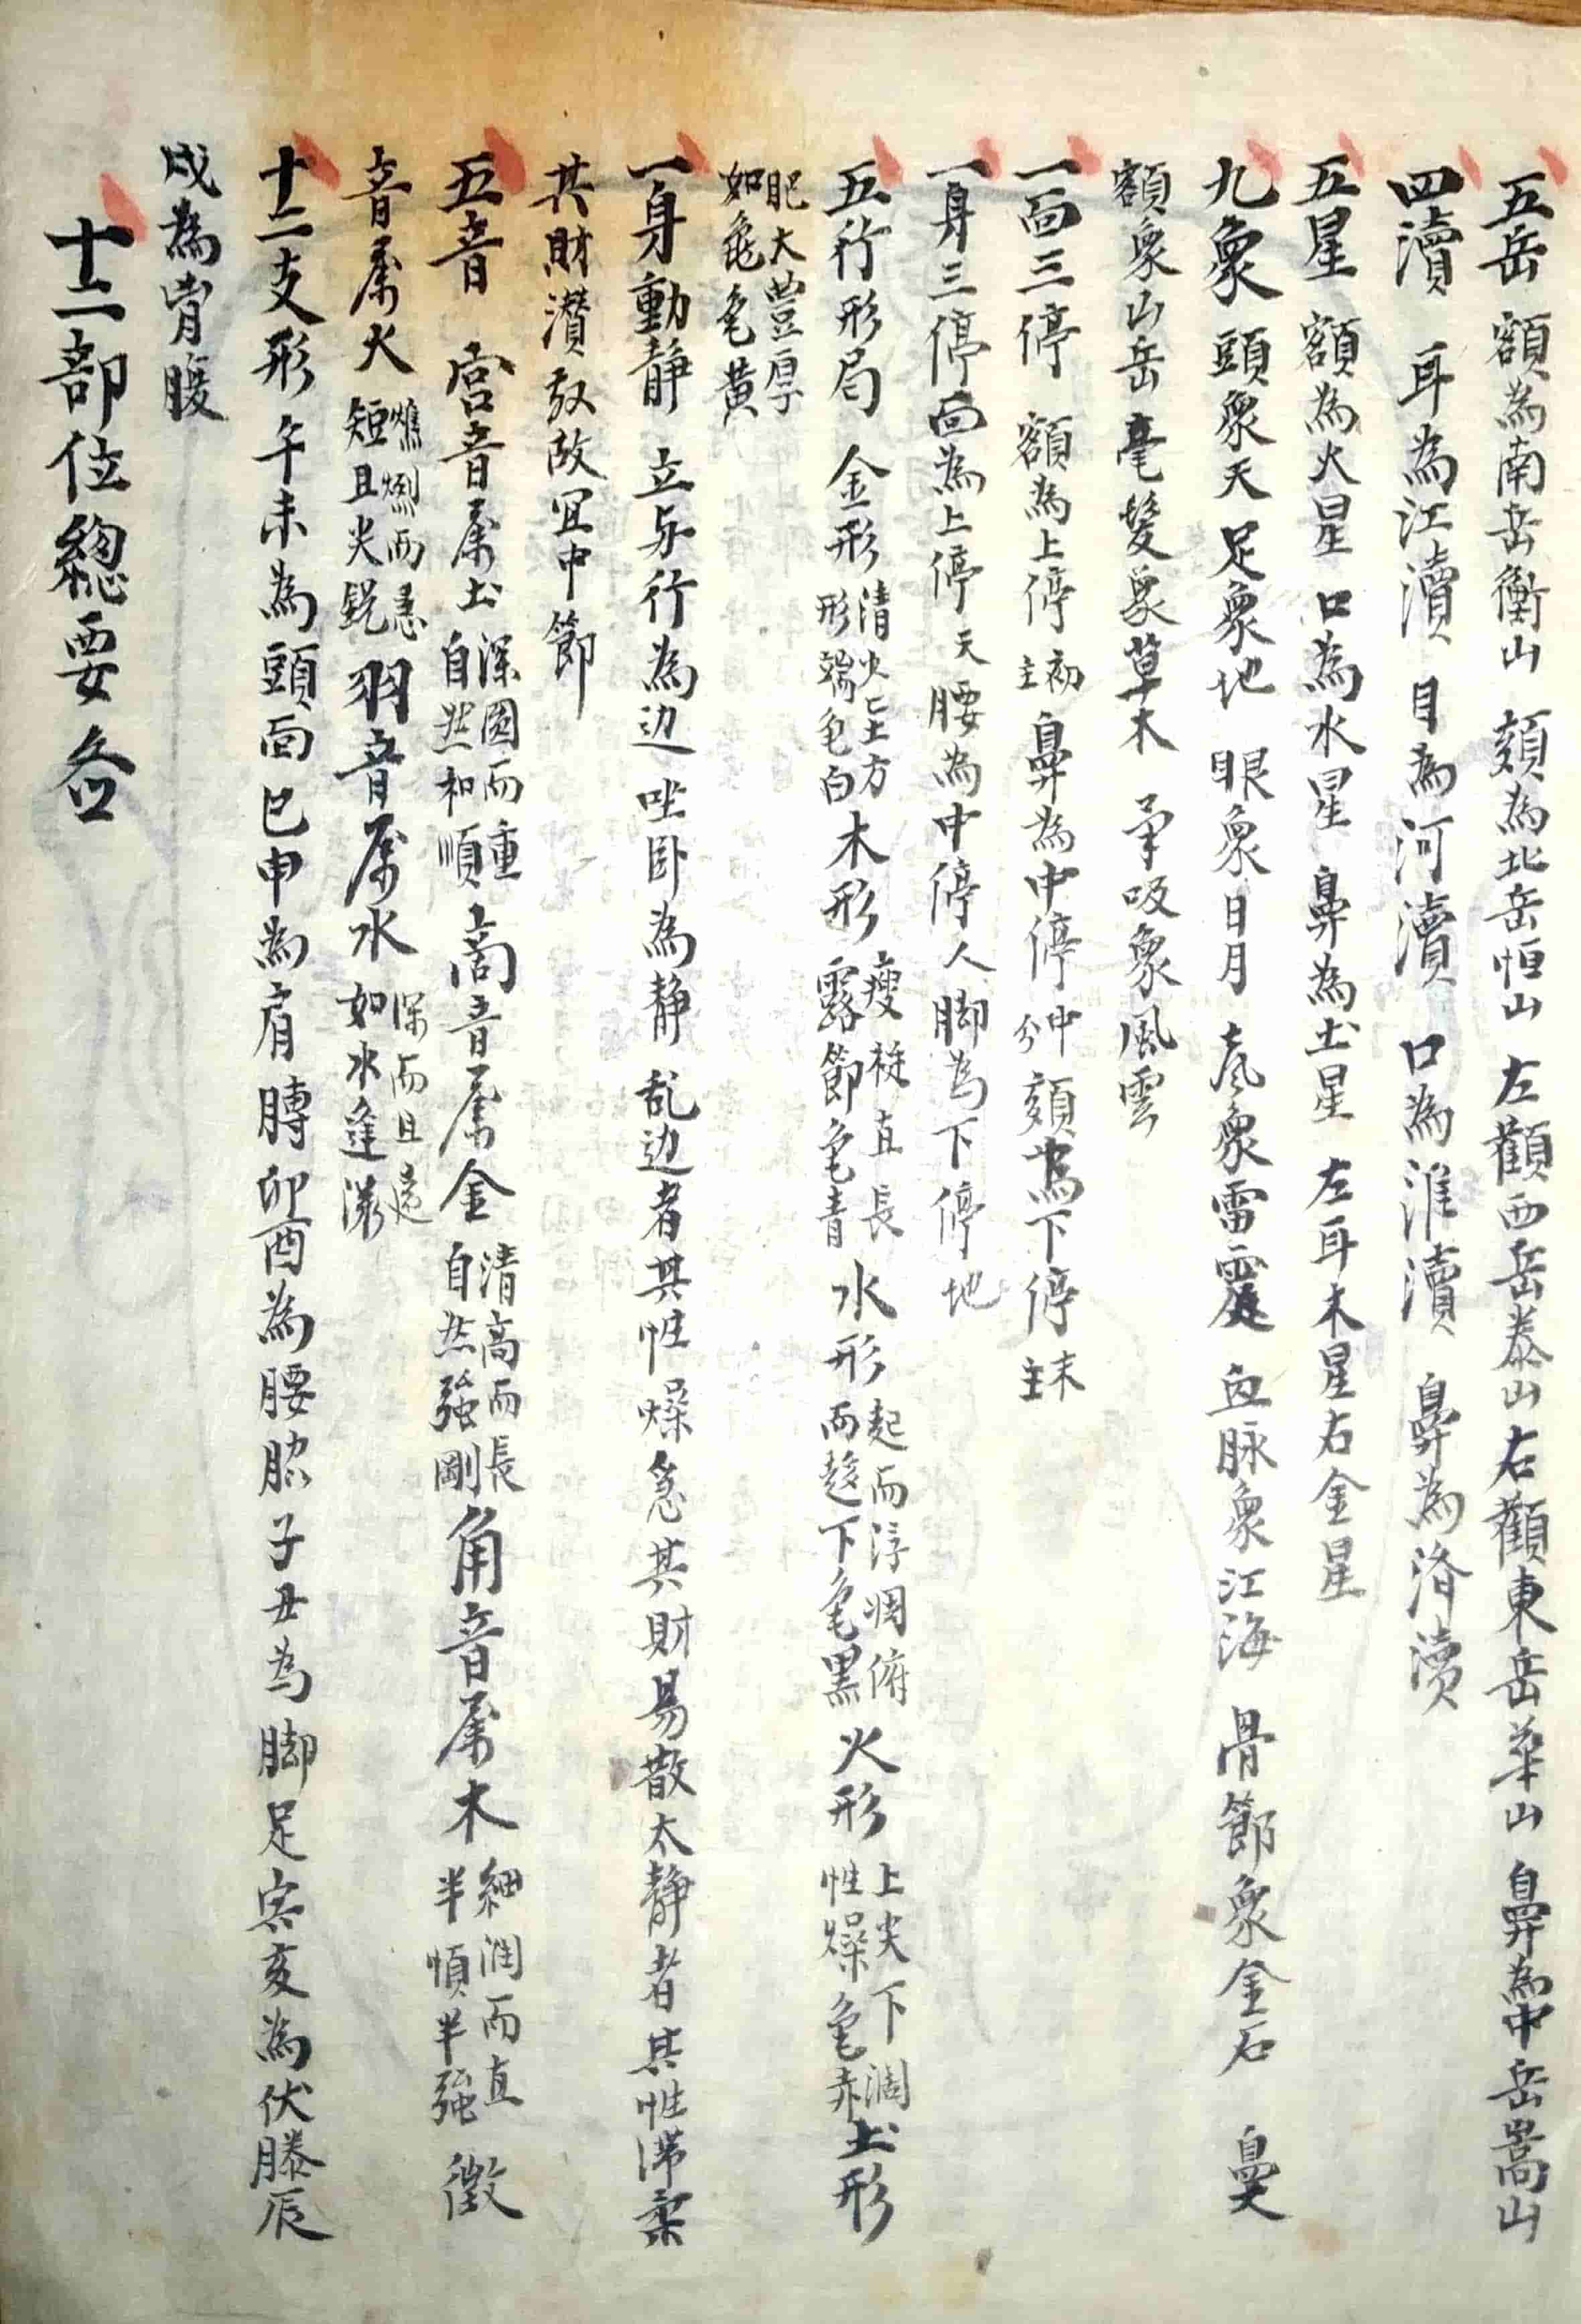 五岳 額為南岳衡山 頦為北岳恒山 左顴西岳泰山 右顴東岳華山 鼻為中岳嵩山
四瀆 耳為江瀆 目為河瀆 口為淮瀆 鼻為済瀆
五星 額為火星 口為水星 鼻為土星 左耳木星右金星
九象 頭象天 足象地 眼象日月 声象雷霆 血脉象江海 骨節象金石 鼻
額象山岳 毫髮象草木 呼吸象風雲
一面三停 額為上停 初主 鼻為中停 中分 頦為下停 末主
一身三停 面為上停 天 腰為中停 人 脚為下停 地
五行形局 金形 清 方 形端色白 木形 瘦 直長 露節色青 水形 起而浮 俯 而 下色黒 火形 上尖下濶 性燥色赤 土形
肥大豊厚 如亀色黄
一身動静 立与行為边 坐卧為静 乱边者其性燥急其財易散太静者其性滞柔
其財 故宜中節
五音 宮音属土 深圓而重 自然和順 商音属金 清高而長 自然強剛 角音属木 細潤而直 半順半強 徵
音属火 燋烈而急 短且尖銳 羽音属水 深而且遠 如水逢
十二支形 午未為頭面 巳申為肩膊 卯酉為腰脇 子丑為脚足 寅亥為伏膝 辰
戌為 腹
十二部位總要